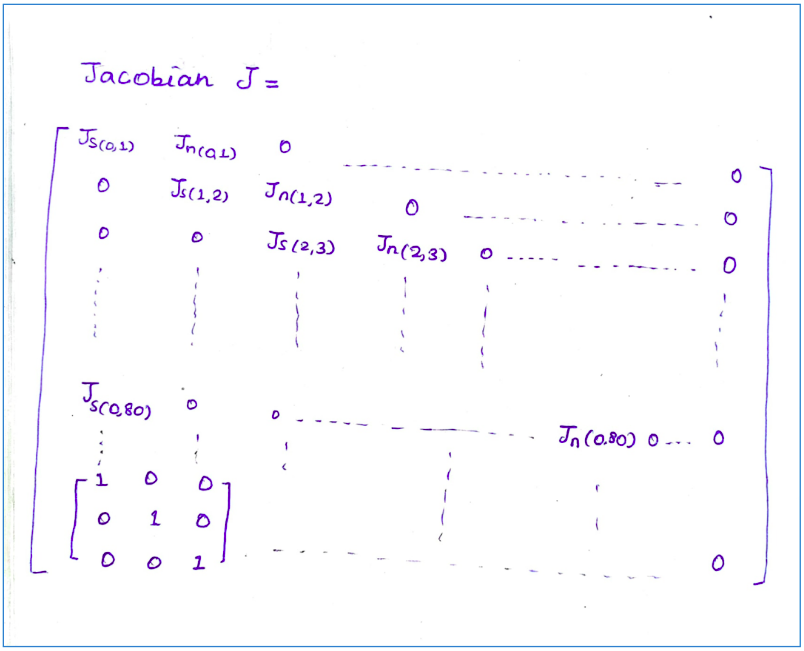 Jacobian J =
Js(0,1) Jn(0,1) 0 0
0 Js(1,2) Jn(1,2) 0 0
0 0 Js(2,3) Jn(2,3) 0 0
Js(0,80) 0 0 Jn(0,80) 0 0
1 0 0
0 1 0
0 0 1 0